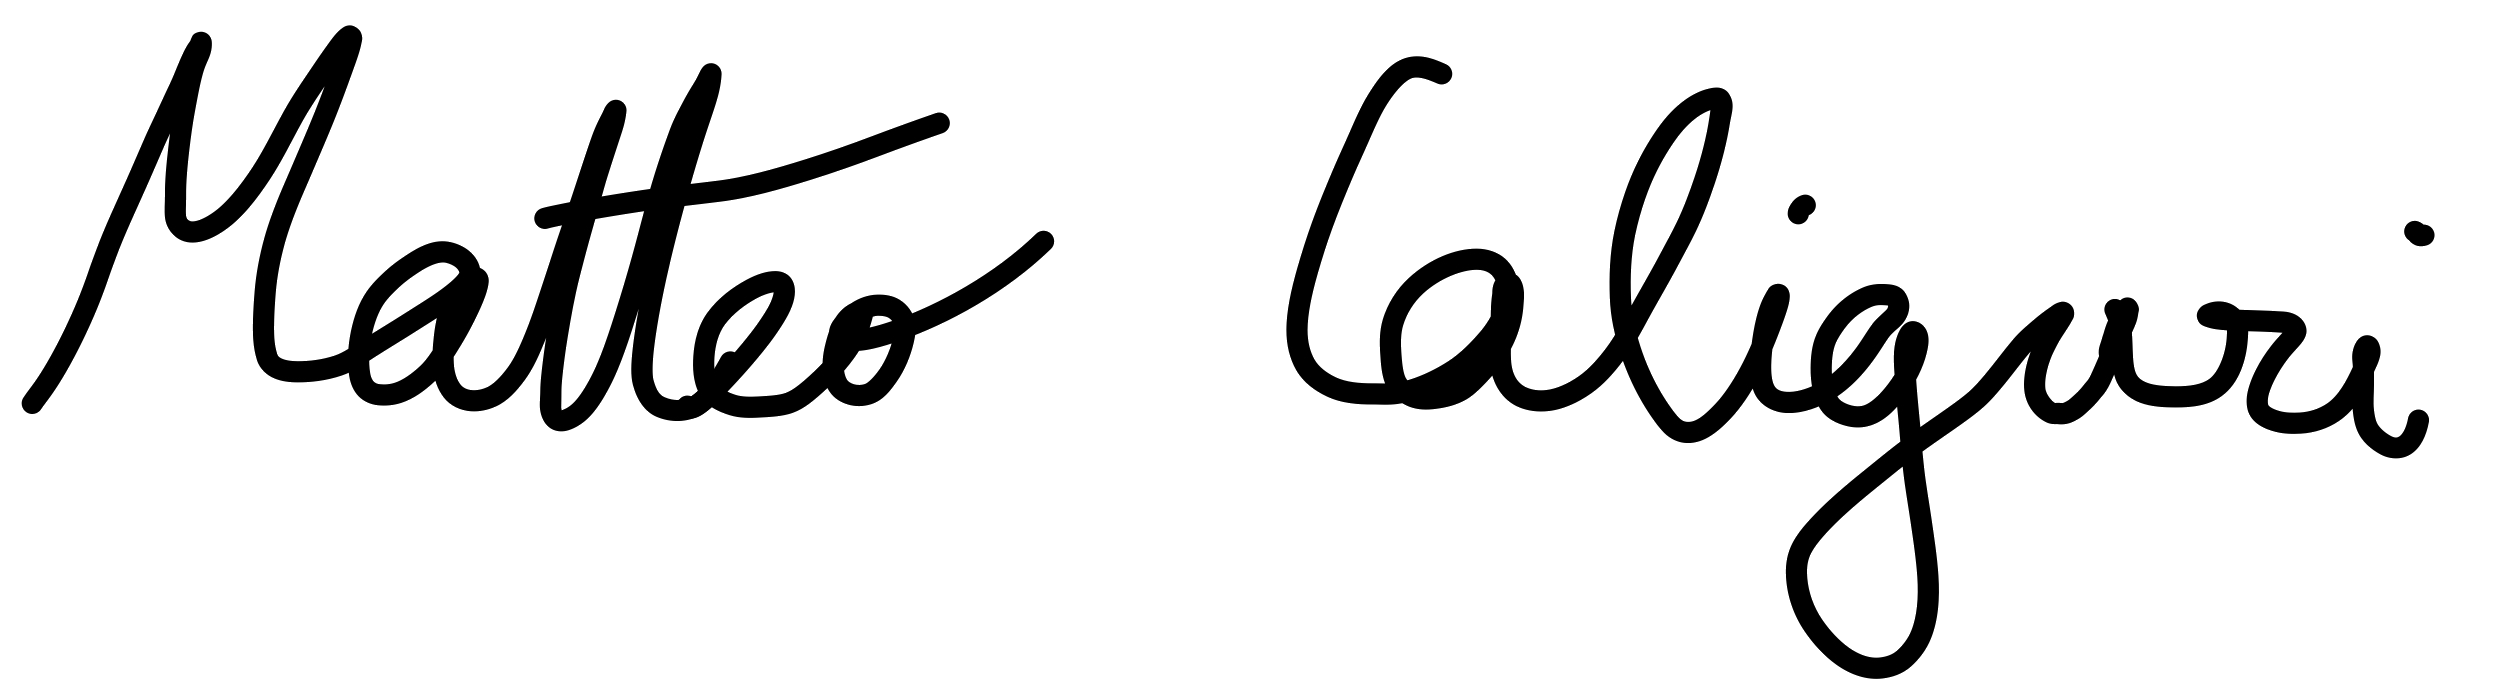 Matteo Caligiuri